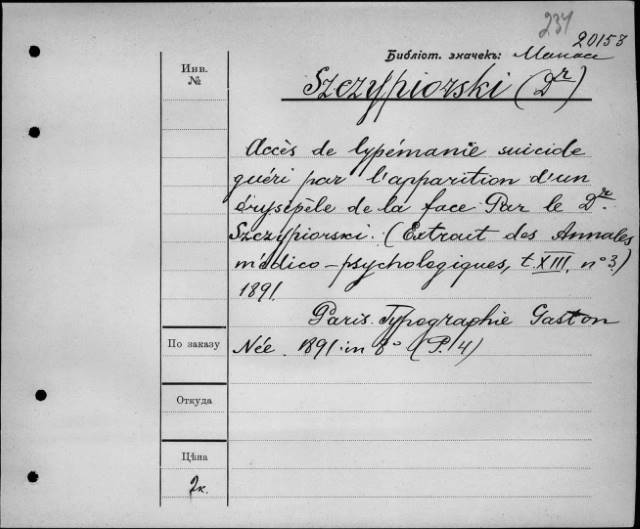 234
20153
Библіот. значекъ:
Инв.
№
Szczypiorski (Dr)
Accès de lypémanie suicide
guéri par l'apparition d'un
érysipèle de la face Par le Dr.
Szczypiorski. (Extrait des Annales
médico-psychologiques, t. XIII, n° 3.)
1891.
Paris. Typographie Gaston
По заказу
Née. 1891. in 8° (P. 14)
Откуда
Цѣна
2к.